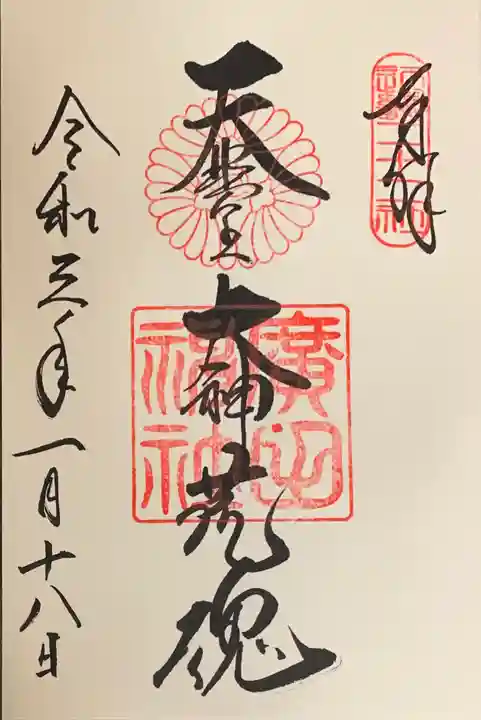 奉拝
天照大神荒魂
廣田神社
令和三年一月十八日